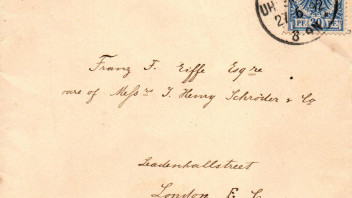 UH
27 6 92
8
PF
20
Franz F. Eiffe Esqre
care of Messrs J. Henry Schröder & Co
Leadenhallstreet
London E. C.